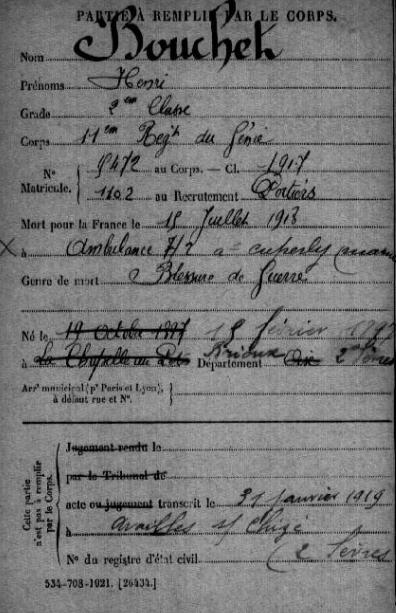 PARTIE À REMPLIR PAR LE CORPS.
Nom Bouchet
Prénoms Henri
Grade 2em Classe
Corps 11em Regt du Génie
N° Matricule. 9472 au Corps. — Cl. 1917
1102 au Recrutement Poitiers
Mort pour la France le 15 Juillet 1918
à Ambulance 7/2 a cuperly (marne
Genre de mort Blessure de Guerre
Né le 19 Octobre 1897 15 février 1897
à La Chapelle au Brioux Département 2 Sèvres
Arrt municipal (pr Paris et Lyon), à défaut rue et N°.
Cette partie n'est pas à remplir par le Corps.
Jugement rendu le
par le Tribunal de
acte ou jugement transcrit le 31 janvier 1919
à availles s/ Chizé
N° du registre d'état civil (2 Sèvres
534-708-1921. [26434.]